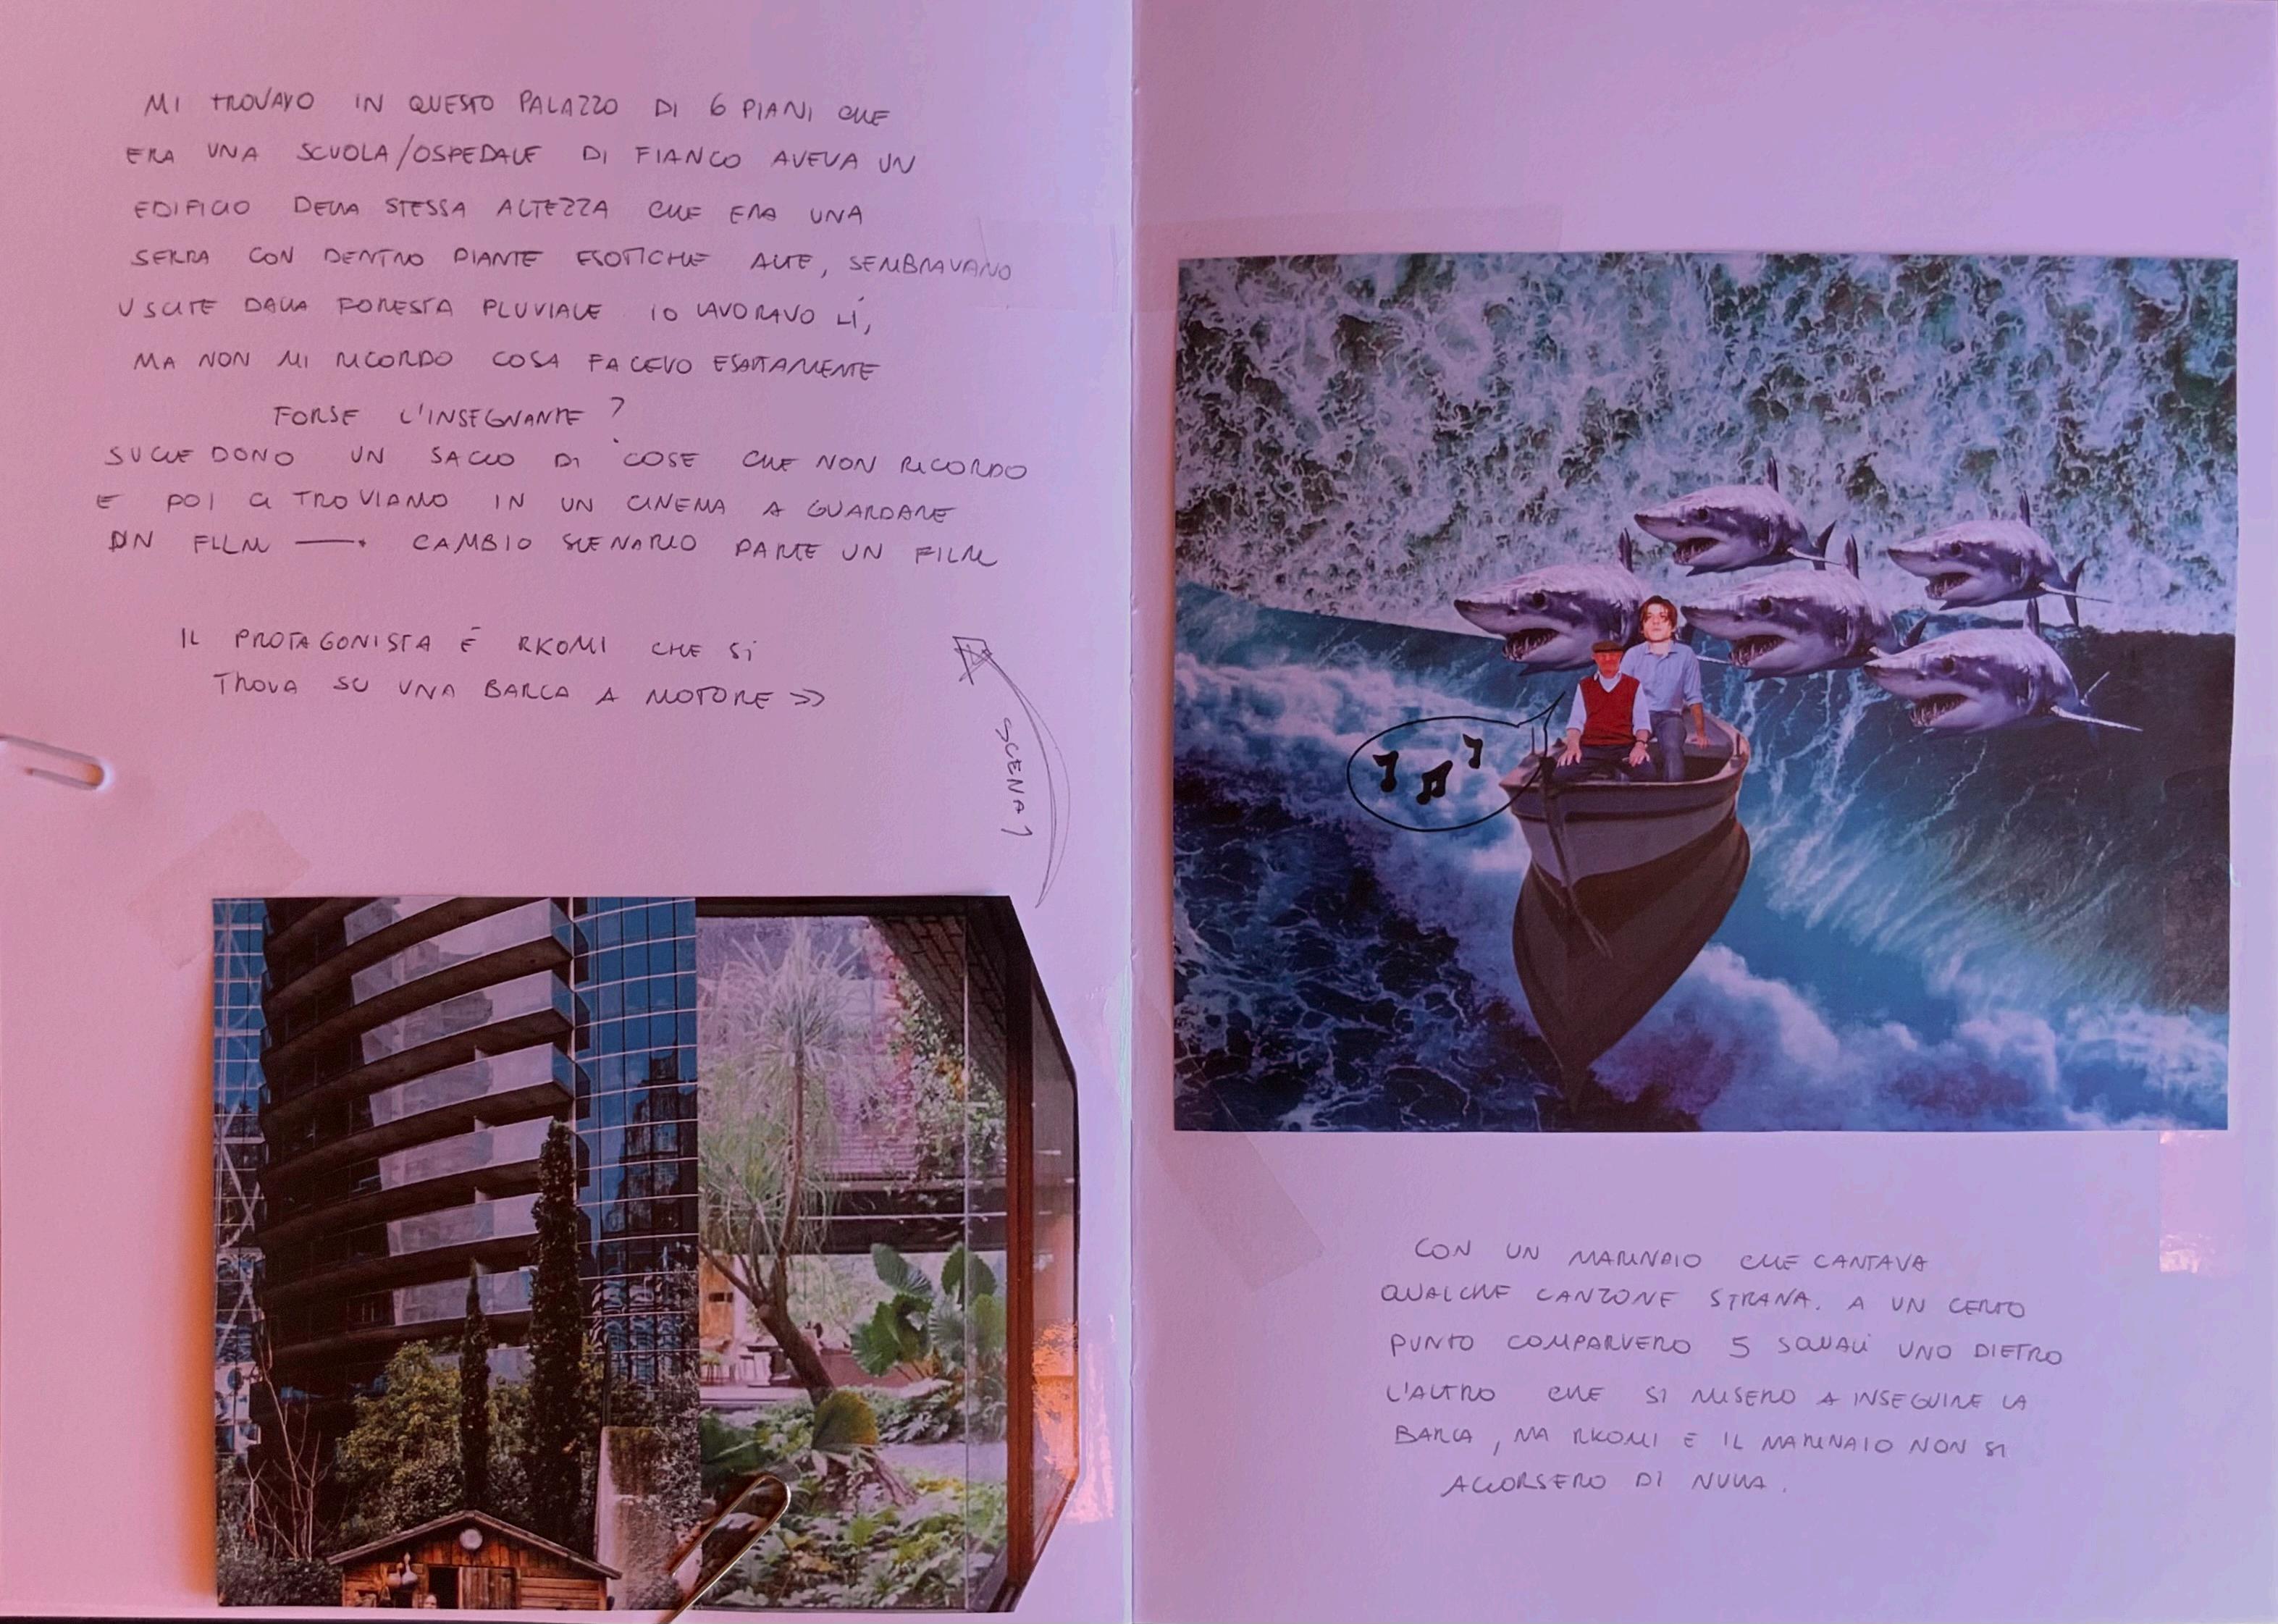 MI TROVAVO IN QUESTO PALAZZO DI 6 PIANI CHE
ERA UNA SCUOLA/OSPEDALE DI FIANCO AVEVA UN
EDIFICIO DELLA STESSA ALTEZZA CHE ERA UNA
SERRA CON DENTRO PIANTE ESOTICHE ALTE, SEMBRAVANO
USCITE DALLA FORESTA PLUVIALE IO LAVORAVO LÍ,
MA NON MI RICORDO COSA FACEVO ESATTAMENTE
FORSE L'INSEGNANTE ?
SUCCEDONO UN SACCO DI COSE CHE NON RICORDO
E POI CI TROVIAMO IN UN CINEMA A GUARDARE
UN FILM → CAMBIO SCENARIO PARTE UN FILM
IL PROTAGONISTA É RKOMI CHE SI
TROVA SU UNA BARCA A MOTORE >>
SCENA 1
CON UN MARINAIO CHE CANTAVA
QUALCHE CANZONE STRANA. A UN CERTO
PUNTO COMPARVERO 5 SQUALI UNO DIETRO
L'ALTRO CHE SI MISERO A INSEGUIRE LA
BARCA, MA RKOMI E IL MARINAIO NON SI
ACCORSERO DI NULLA.